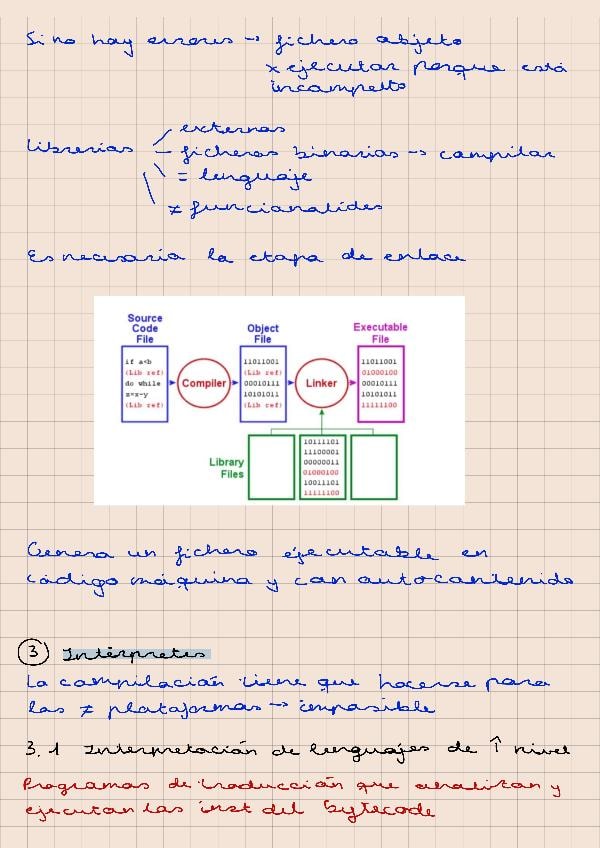 Si no hay errores → fichero objeto
x ejecutar porque está
incompelto
Librerías
externas
ficheros binarios → compilar
= lenguaje
≠ funcionalides
Es necesaria la etapa de enlace
Source
Code
File
Object
File
Executable
File
if a<b
(Lib ref)
do while
z=x-y
(Lib ref)
Compiler
11011001
(Lib ref)
00010111
10101011
(Lib ref)
Linker
11011001
01000100
00010111
10101011
11111100
Library
Files
10111101
11100001
00000011
01000100
10011101
11111100
Genera un fichero ejecutable en
código máquina y con autocontenido
3 Intérpretes
La compilación tiene que hacerse para
las ≠ plataformas → imposible
3.1 Interpretación de lenguajes de ↑ nivel
Programas de traducción que analizan y
ejecutan las inst del bytecode